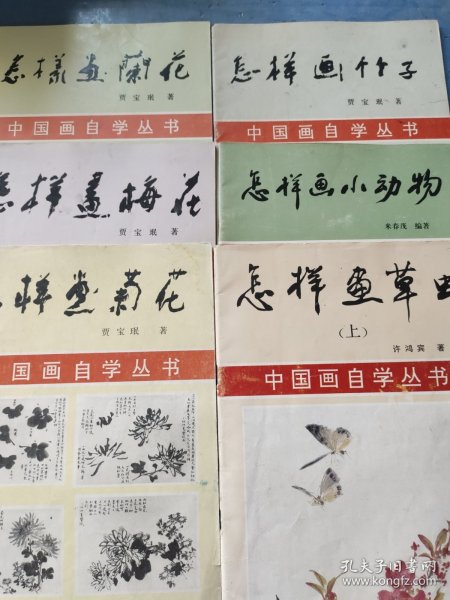 怎樣畫蘭花
贾宝珉 著
中国画自学丛书
怎样画竹子
贾宝珉 著
中国画自学丛书
怎样畫梅花
贾宝珉 著
怎样画小动物
米春茂 编著
怎样畫菊花
贾宝珉 著
国画自学丛书
怎样畫草虫
(上)
许鸿宾 著
中国画自学丛书
孔夫子旧书网
www.kongfz.com